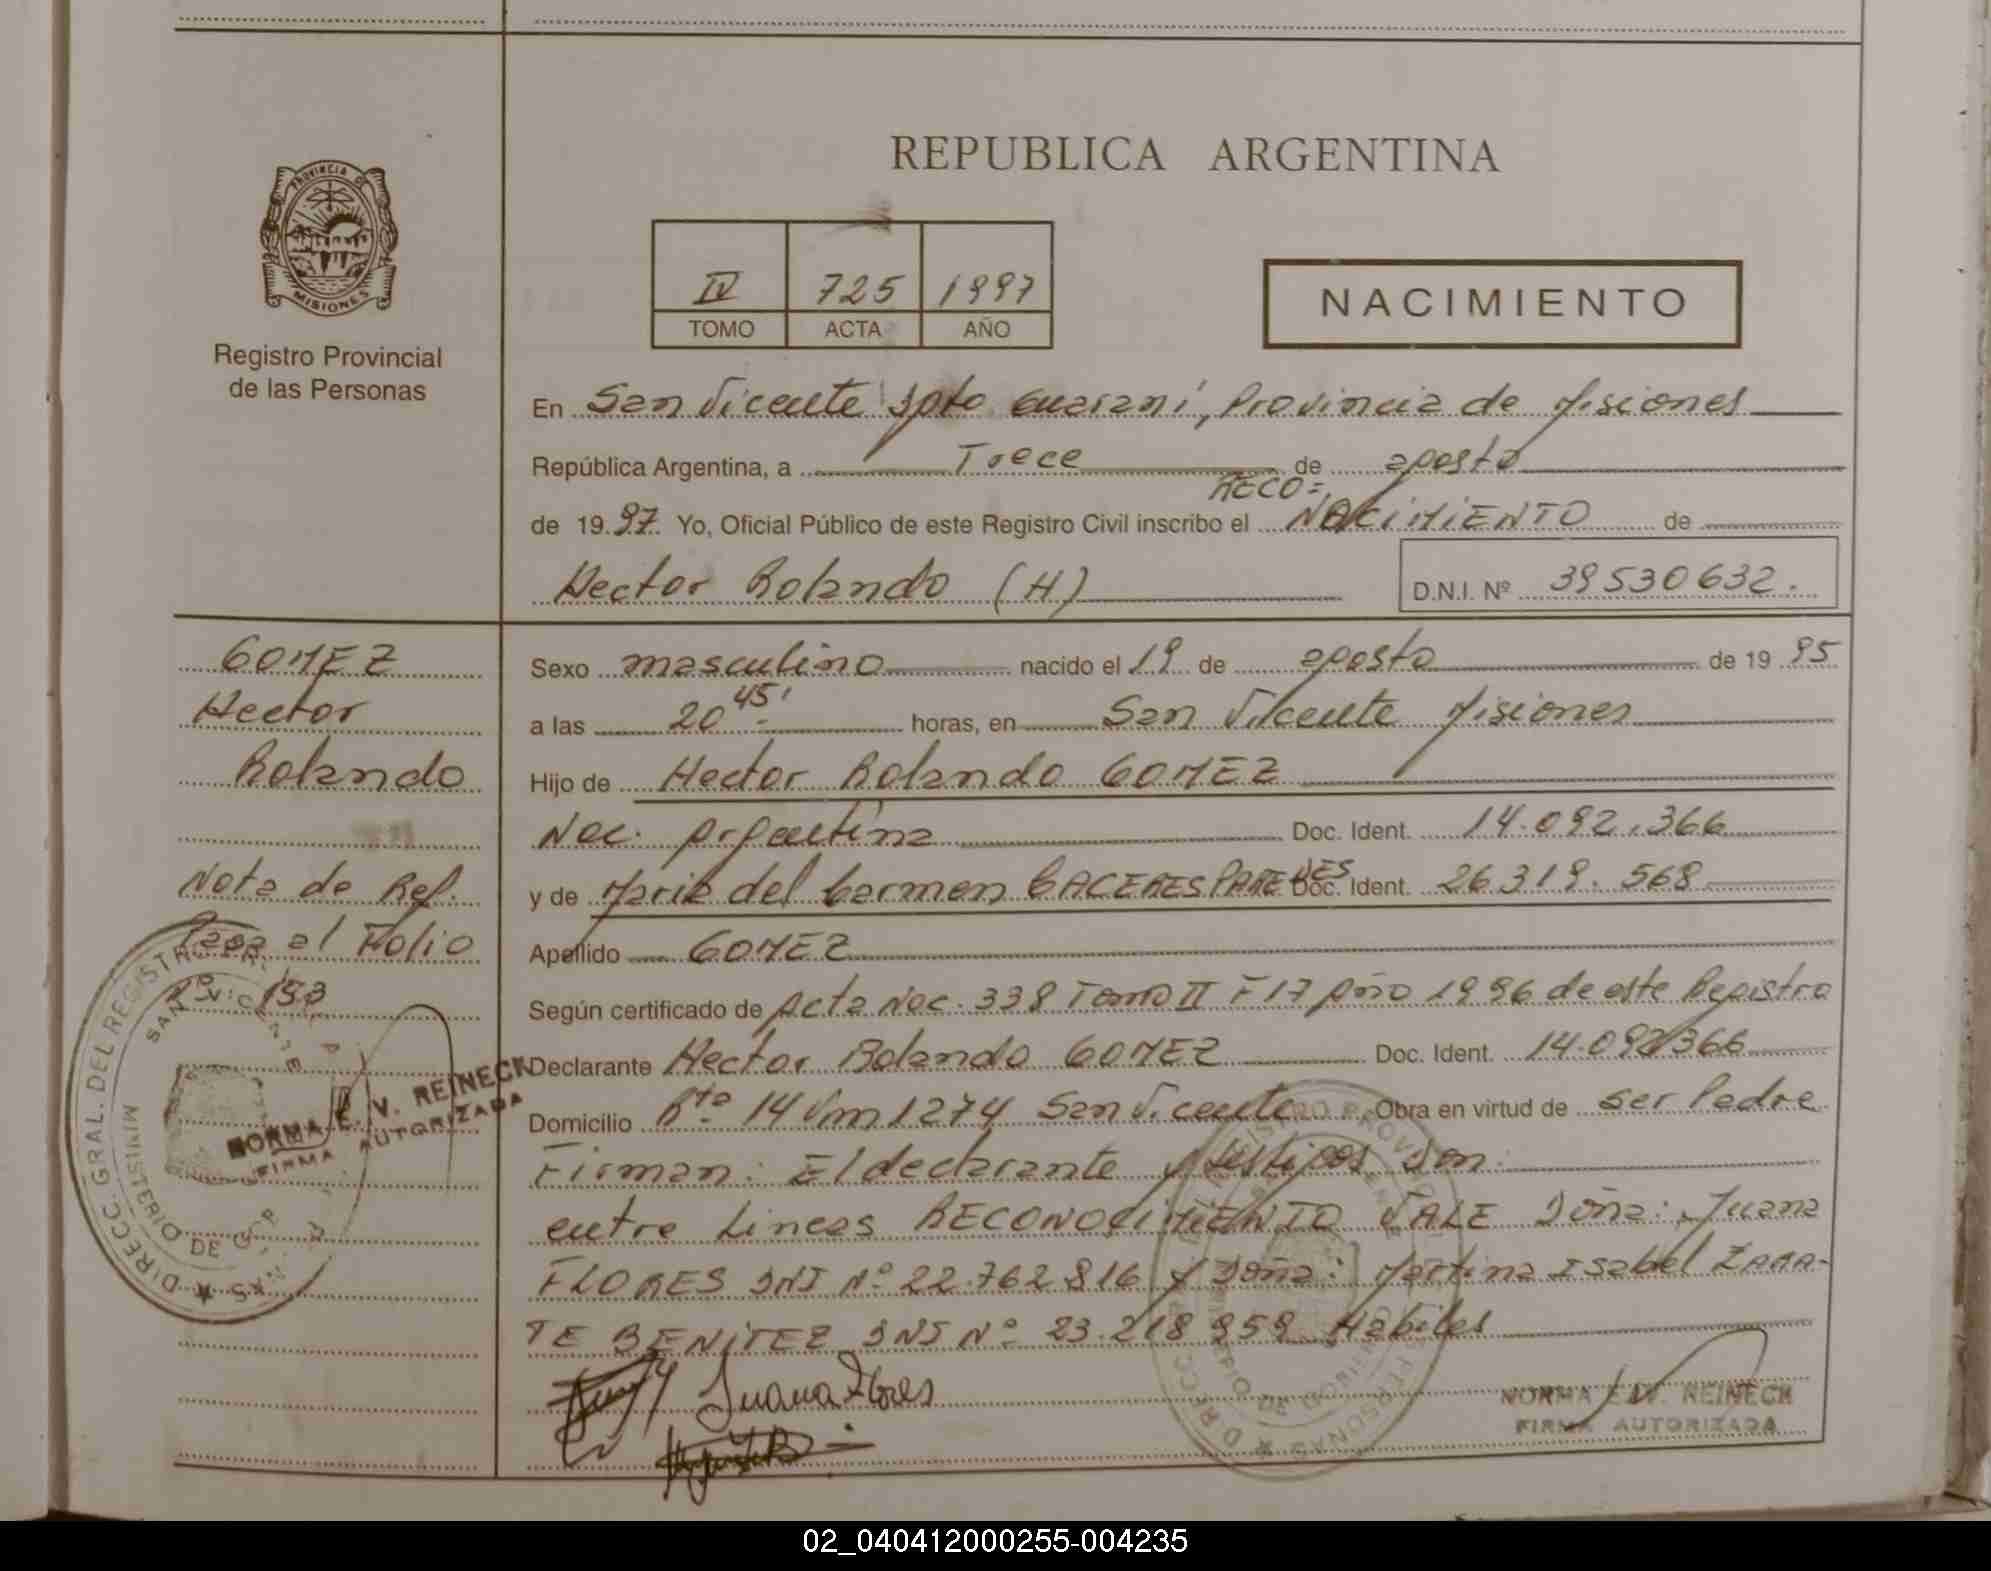 REPUBLICA ARGENTINA
PROVINCIA DE
MISIONES
Registro Provincial
de las Personas
IV 725 1997
TOMO ACTA AÑO
NACIMIENTO
En San Vicente Dpto Guaraní, Provincia de Misiones
República Argentina, a Trece de agosto
RECO=
de 1997. Yo, Oficial Público de este Registro Civil inscribo el NACIMIENTO de
Hector Rolando (H)
D.N.I. Nº 39530632.
GOMEZ
Hector
Rolando
Nota de Ref.
Pasa al Folio
Nº 153
Sexo masculino nacido el 19 de agosto de 1995
a las 20 45' horas, en San Vicente Misiones
Hijo de Hector Rolando GOMEZ
Nac. Argentina Doc. Ident. 14.092.366
y de Maria del Carmen CACERES PAREDES Doc. Ident. 26319.568
Apellido GOMEZ
Según certificado de Acta Nac. 338 Tomo II F 17 Año 1996 de este Registro
Declarante Hector Rolando GOMEZ Doc. Ident. 14.092366
Domicilio Rta 14 Km 1274 San Vicente Obra en virtud de ser Padre
Firman: El declarante y testigos Don:
entre Lineas RECONOCIMIENTO VALE Doña: Juana
FLORES DNI Nº 22.762816 y Doña: Martina Isabel ZARA-
TE BENITEZ DNI Nº 23.218959 Habiles
Juana Flores
NORMA E. V. REINECK
FIRMA AUTORIZADA
NORMA E. V. REINECK
FIRMA AUTORIZADA
DIRECC. GRAL. DEL REGISTRO
SAN VICENTE
MINISTERIO DE
02_040412000255-004235